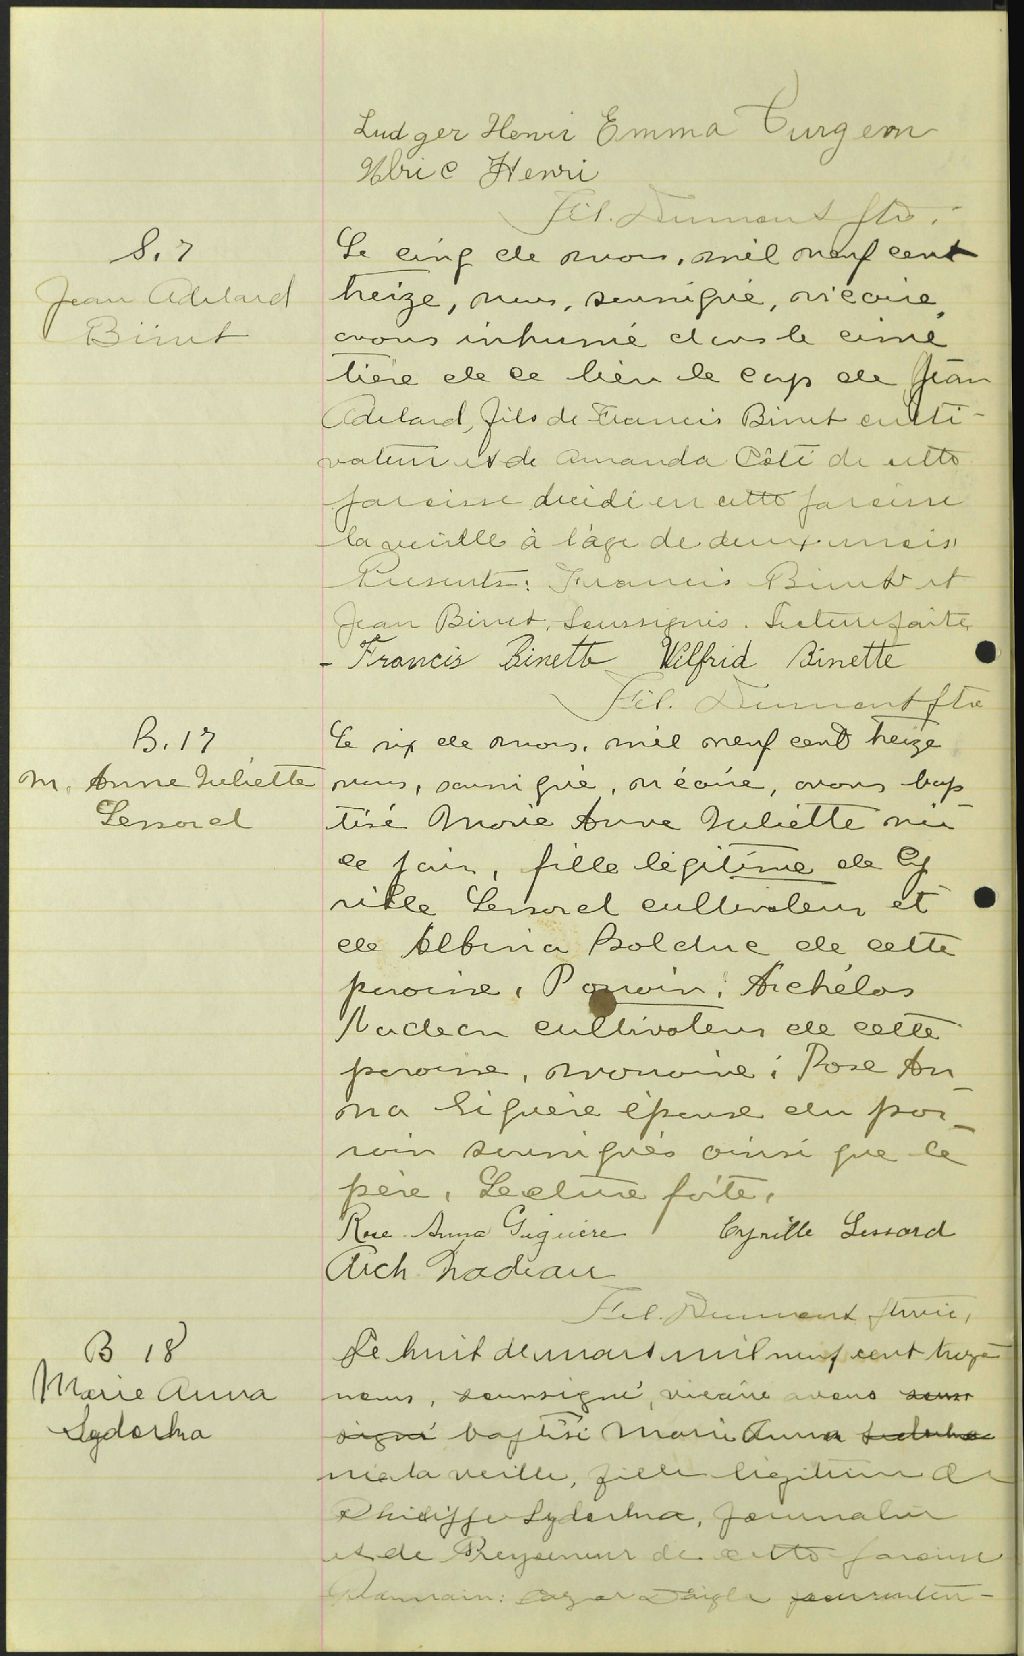 Ludger Henri Emma Turgeon
Ulric Henri
Fél. Dumont ptre.
S. 7
Jean Adelard
Binet
Le cinq de mars, mil neuf cent
treize, nous, soussigné, vicaire,
avons inhumé dans le cime
tière de ce lieu le corps de Jean
Adelard, fils de Francis Binet culti-
vateur et de Amanda Côté de cette
paroisse décédé en cette paroisse
la veille à l'âge de deux mois
Presents: Francis Binet et
Jean Binet, Soussignés. Lecture faite
- Francis Binette Wilfrid Binette
Fél. Dumont ptre
B. 17
M. Anne Juliette
Lessard
Le six de mars, mil neuf cent treize
nous, soussigné, vicaire, avons bap
tisé Marie Anne Juliette née
ce jour, fille légitime de Cy
rille Lessard cultivateur et
de Albina Bolduc de cette
paroisse, Parrain: Archélas
Nadeau cultivateur de cette
paroisse, marraine: Rose An
na Giguère épouse du par
rain soussignés ainsi que le
père, Lecture faite,
Rose Anna Giguère Cyrille Lessard
Arch Nadeau
Fél. Dumont ptre vic,
B 18
Marie Anna
Lydorha
Le huit de mars mil neuf cent treize
nous, soussigné, vicaire avons sous
signé baptisé Marie Anna
née la veille, fille légitime de
Philippe Lydorha, journalier
et de de cette paroisse
Parrain: Daigle